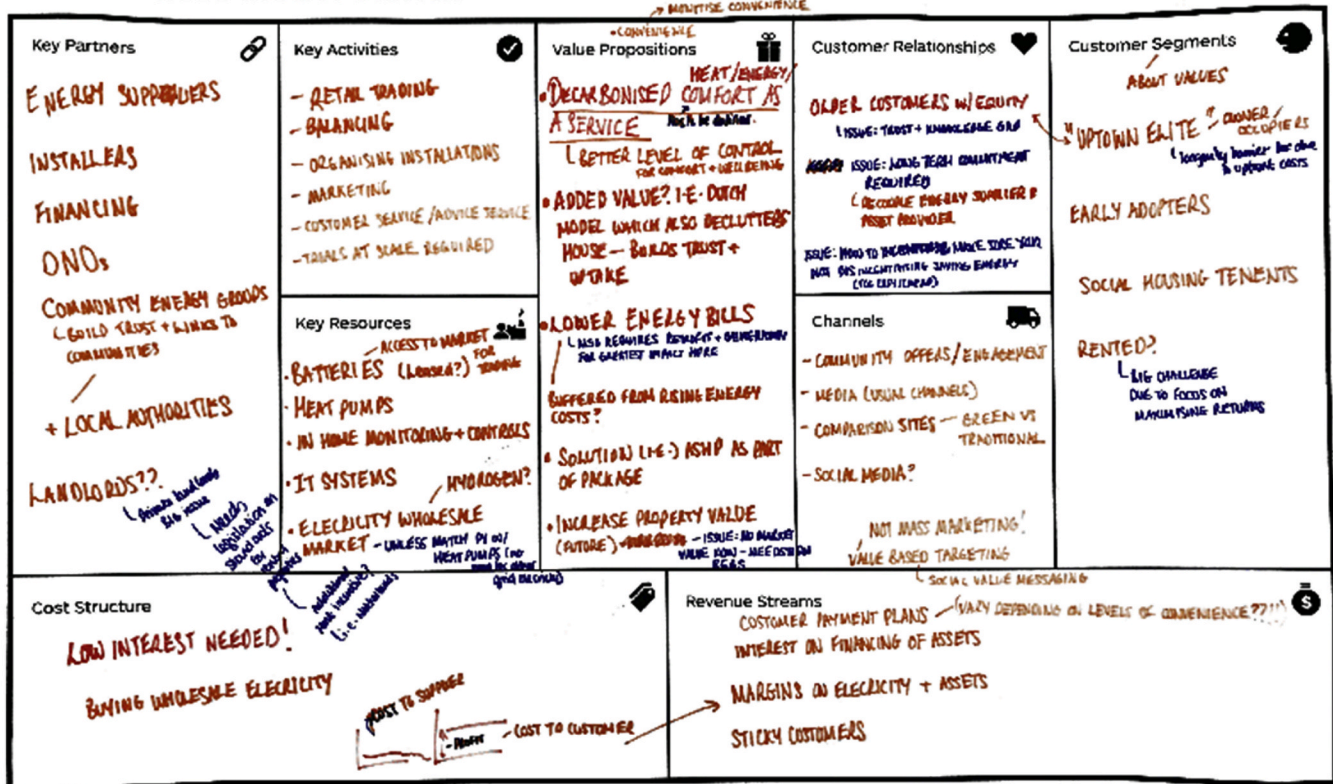 → MONETISE CONVENIENCE
• CONVENIENCE
Key Partners
ENERGY SUPPLIERS
INSTALLERS
FINANCING
DNOs
COMMUNITY ENERGY GROUPS
BUILD TRUST + LINKS TO
COMMUNITIES
+ LOCAL AUTHORITIES
LANDLORDS??
Private landlords
BIG issue
Needs
legislation on
standards
for
rented
properties
Additional
(i.e. Netherlands)
Key Activities
- RETAIL TRADING
- BALANCING
- ORGANISING INSTALLATIONS
- MARKETING
- CUSTOMER SERVICE / ADVICE SERVICE
- TRIALS AT SCALE REQUIRED
Key Resources
ACCESS TO MARKET
FOR
TRADING
• BATTERIES (Leased?)
• HEAT PUMPS
• IN HOME MONITORING + CONTROLS
• IT SYSTEMS
HYDROGEN?
• ELECRICITY WHOLESALE
MARKET - UNLESS MATCH PV W/
HEAT PUMPS (no
Value Propositions
HEAT/ENERGY/
• DECARBONISED COMFORT AS
A SERVICE
BETTER LEVEL OF CONTROL
FOR COMFORT + WELLBEING
• ADDED VALUE? I.E. DUTCH
MODEL WHICH ALSO DECLUTTERS
HOUSE — BUILDS TRUST +
UPTAKE
• LOWER ENERGY BILLS
ALSO REQUIRES RETROFIT + GENERATION
FOR GREATEST IMPACT HERE
BUFFERED FROM RISING ENERGY
COSTS?
• SOLUTION (I.E.) ASHP AS PART
OF PACKAGE
• INCREASE PROPERTY VALUE
(FUTURE) - ISSUE: NO MARKET
VALUE NOW - NEEDS
REGS
Customer Relationships
OLDER CUSTOMERS W/ EQUITY
ISSUE: TRUST + KNOWLEDGE GAP
ISSUE: LONG TERM COMMITMENT
REQUIRED
DECOUPLE ENERGY SUPPLIER &
ASSET PROVIDER
ISSUE: HOW TO MAKE SURE YOU'RE
NOT DISINCENTIVISING SAVING ENERGY
Channels
- COMMUNITY OFFERS/ENGAGEMENT
- MEDIA (USUAL CHANNELS)
- COMPARISON SITES — GREEN VS
TRADITIONAL
- SOCIAL MEDIA?
NOT MASS MARKETING!
VALUE BASED TARGETING
SOCIAL VALUE MESSAGING
Customer Segments
ABOUT VALUES
"UPTOWN ELITE" - OWNER/
OCCUPIERS
longevity barrier here due
to upfront costs
EARLY ADOPTERS
SOCIAL HOUSING TENENTS
RENTED?
BIG CHALLENGE
DUE TO FOCUS ON
MAXIMISING RETURNS
Cost Structure
LOW INTEREST NEEDED!
BUYING WHOLESALE ELECRICITY
COST TO SUPPLIER
- PROFIT
- COST TO CUSTOMER
Revenue Streams
CUSTOMER PAYMENT PLANS — (VARY DEPENDING ON LEVELS OF CONVENIENCE??!!)
INTEREST ON FINANCING OF ASSETS
MARGINS ON ELECRICITY + ASSETS
STICKY CUSTOMERS